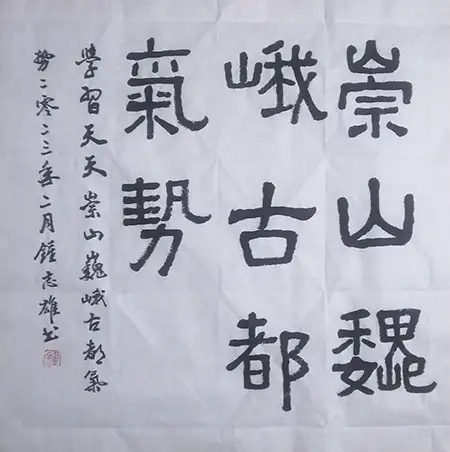 崇山魏
峨古都
氣勢
學習天天崇山巍峨古都氣
勢二零二三年二月鍾志雄书